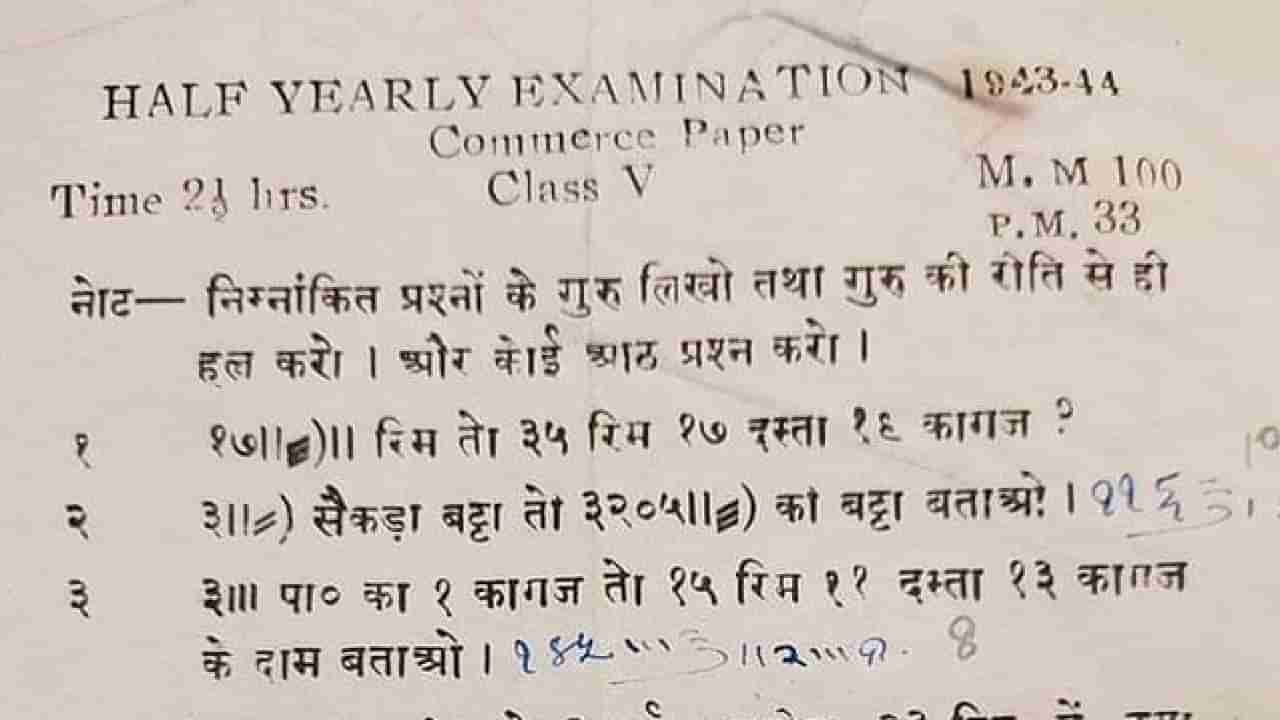 HALF YEARLY EXAMINATION 1943-44
Commerce Paper
Time 2½ hrs. Class V M. M 100
P. M. 33
नोट— निम्नांकित प्रश्नों के गुरु लिखो तथा गुरु की रीति से ही
हल करो । और कोई आठ प्रश्न करो ।
१ १७॥)॥ रिम तो ३५ रिम १७ दस्ता १६ कागज ?
२ ३॥=) सैकड़ा बट्टा तो ३२०५॥) का बट्टा बताओ । ११६
३ ३॥। पा० का १ कागज तो १५ रिम ११ दस्ता १३ कागज
के दाम बताओ । 8